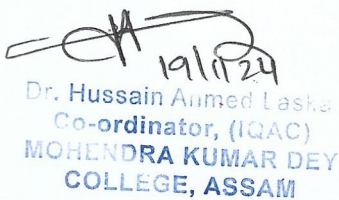 19/11/24
Dr. Hussain Ahmed Laskar
Co-ordinator, (IQAC)
MOHENDRA KUMAR DEY
COLLEGE, ASSAM